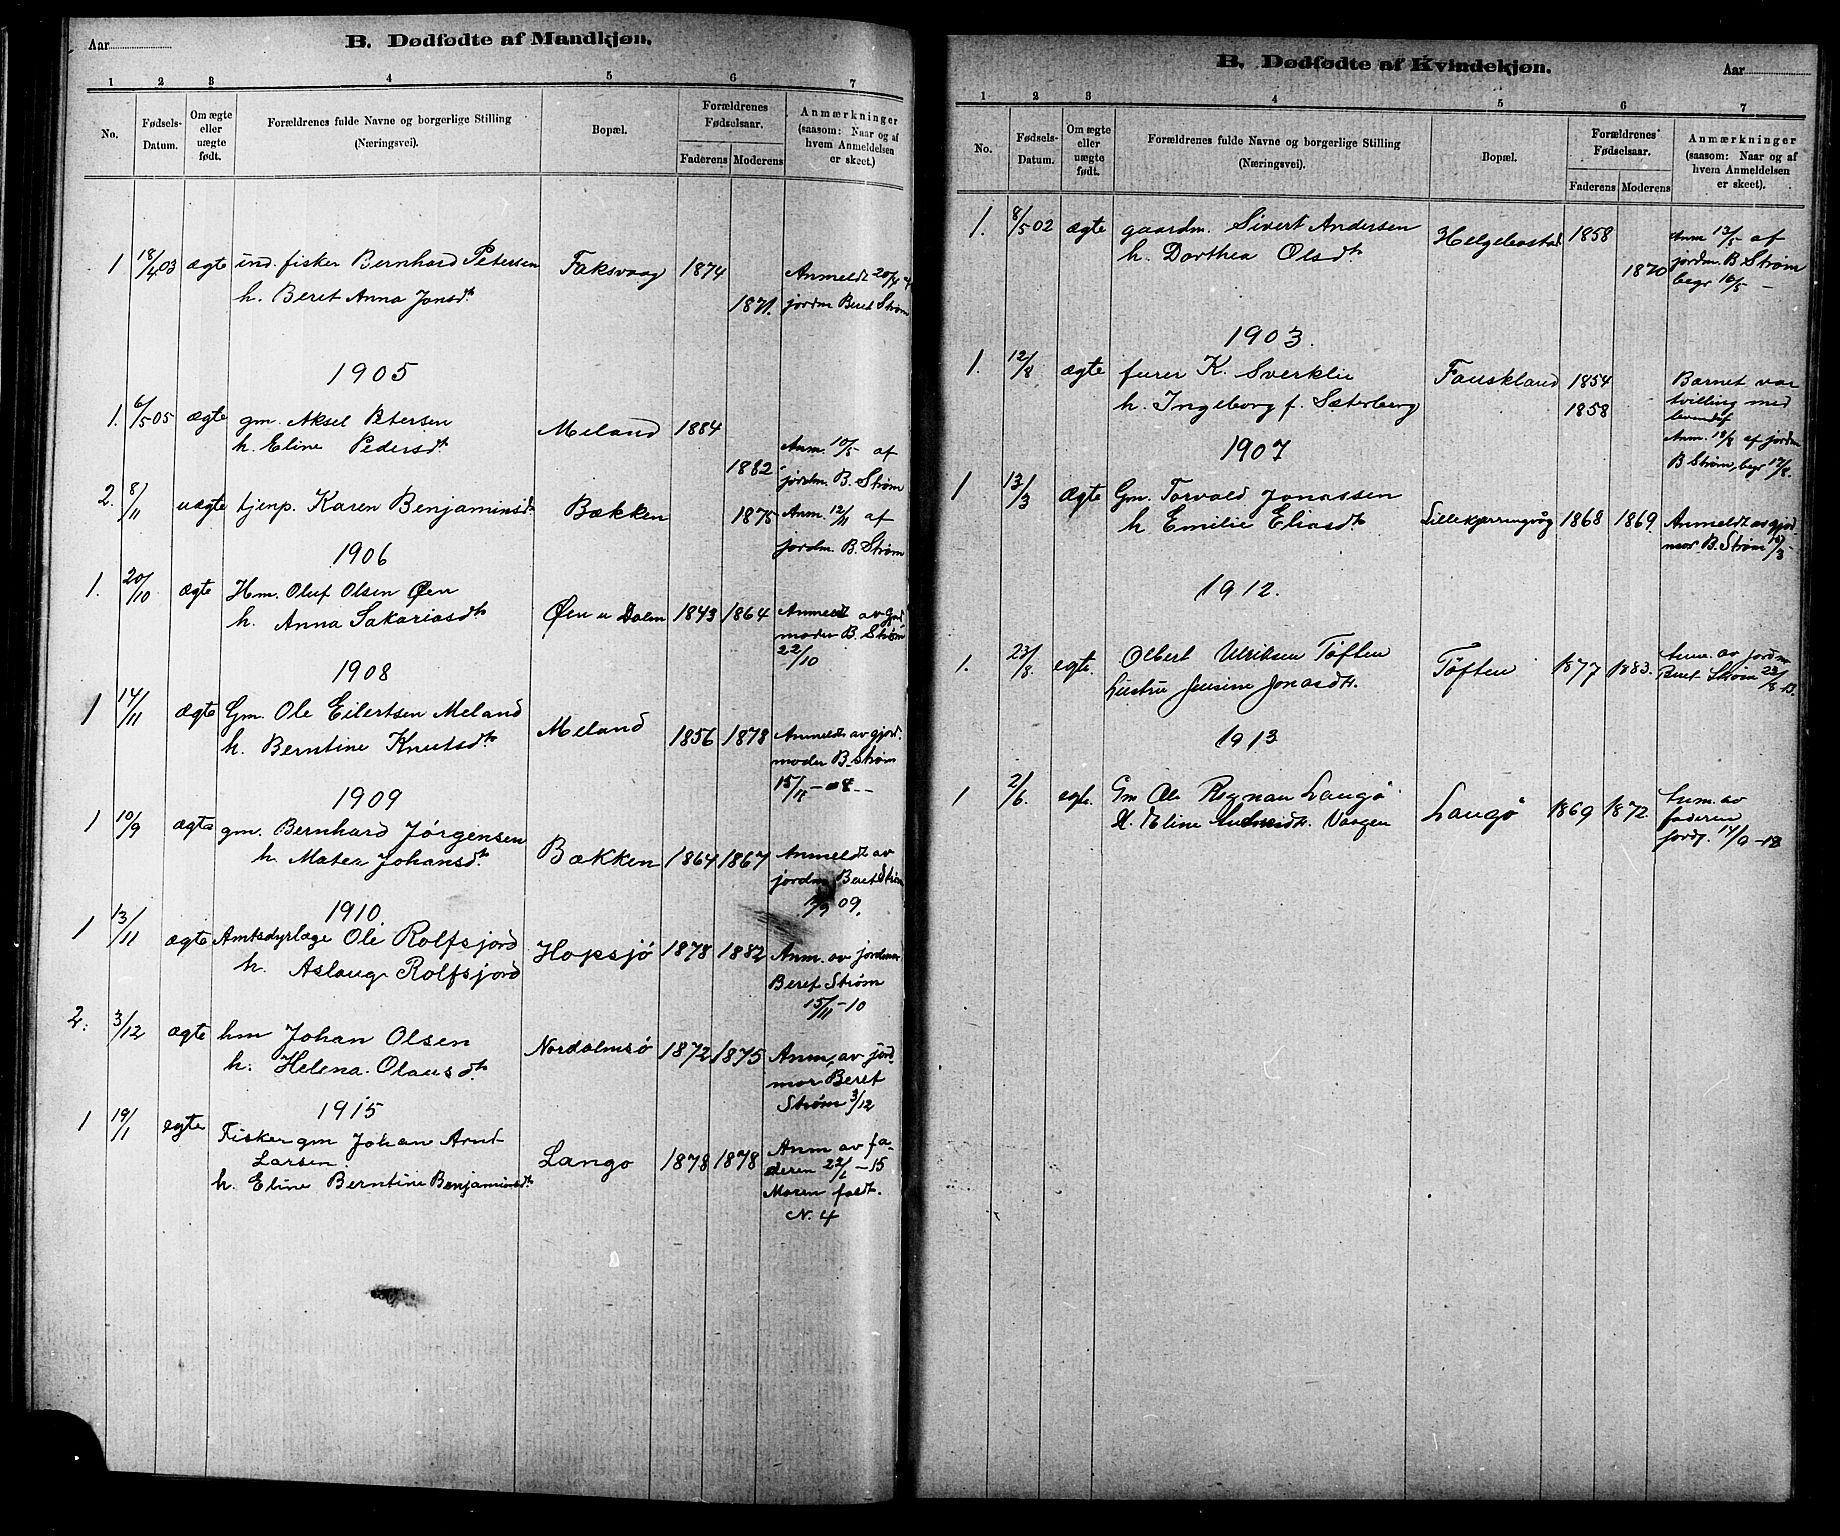 Aar
B. Dødfødte af Mandkjøn.
1 2 3 4 5 6 7
No.
Fødsels-
Datum.
Om ægte
eller
uægte
født.
Forældrenes fulde Navne og borgerlige Stilling
(Næringsvei).
Bopæl.
Forældrenes
Fødselsaar.
Faderens Moderens
Anmærkninger
(saasom: Naar og af
hvem Anmeldelsen
er skeet.)
1 18/4 03 ægte ind. fisker Bernhard Petersen Faksvaag 1874 Anmeldt 20/4 af
h. Beret Anna Jonsdt. 1871. jordm Beret Strøm
1905
1. 6/5 05 ægte gm. Aksel Petersen Meland 1884
h. Eline Pedersdt. 1882 Anm. 10/5 af
jordm. B. Strøm
2. 8/11 uægte tjenp. Karen Benjaminsdt. Bækken 1875 Anm. 12/11 af
jordm. B. Strøm
1906
1. 20/10 ægte Hm. Oluf Olsen Øen Øen u Dolm 1843 1864 Anmeldt av gjord
h. Anna Sakariasdt. moder B. Strøm
22/10
1908
1 14/11 ægte Gm. Ole Eilertsen Meland Meland 1856 1878 Anmeldt av gjord.
h. Berntine Knutsdt. moder B. Strøm
15/11 -08--
1909
1 10/9 ægte gm. Bernhard Jørgensen Bækken 1864 1867 Anmeldt av
h. Maten Johansdt. jordm Beret Strøm
09.
1910.
1 13/11 ægte Amtsdyrlæge Ole Rolfsjord Hopsjø 1878 1882 Anm. av jordmor
h. Aslaug Rolfsjord Beret Strøm
15/11-10
2. 3/12 ægte hm Johan Olsen Nordalmsø 1872 1875 Anm. av jord
h. Helena Olausdt. mor Beret
Strøm 3/12
1915
1 19/1 egte Fisker gm Johan Arnt Lango 1878 1878 Anm av fa-
Larsen. deren 22/1-15
h. Eline Berntine Benjaminsdt. Moren født.
N. 4
B. Dødfødte af Kvindekjøn.
Aar
1 2 3 4 5 6 7
No.
Fødsels-
Datum.
Om ægte
eller
uægte
født.
Forældrenes fulde Navne og borgerlige Stilling
(Næringsvei).
Bopæl.
Forældrenes
Fødselsaar.
Faderens Moderens
Anmærkninger
(saasom: Naar og af
hvem Anmeldelsen
er skeet).
1. 8/5 02 ægte gaardm. Sivert Andersen Helgebostad 1858 Anm 13/5 af
h. Dorthea Olsdt. 1870 jordm. B. Strøm
begr 16/5 -
1903.
1. 12/8 ægte furer K. Sverklie Fauskland 1854 Barnet var
h. Ingeborg f. Sæterberg 1858 tvilling med
levendef
1907 Anm. 18/8 af jordm
B Strøm, begr 17/8.
1 13/3 ægte Gm. Torvald Jonassen Lillekjerringvåg 1868 1869 Anmeldt av gjord
h Emilie Eliasdt. moer B. Strøm 15/3-
1912.
1. 23/8. egte. Olbert Ulriksen Tøften Tøften 1877 1883. Anm. av jordm
Hustru Jensine Jonasdt. Beret Strøm 23/8-12.
1913
1 2/6. egte. Gm Ole Regnar Langø Langø 1869 1872. Anm. av
H. Eline Vaagen faderen